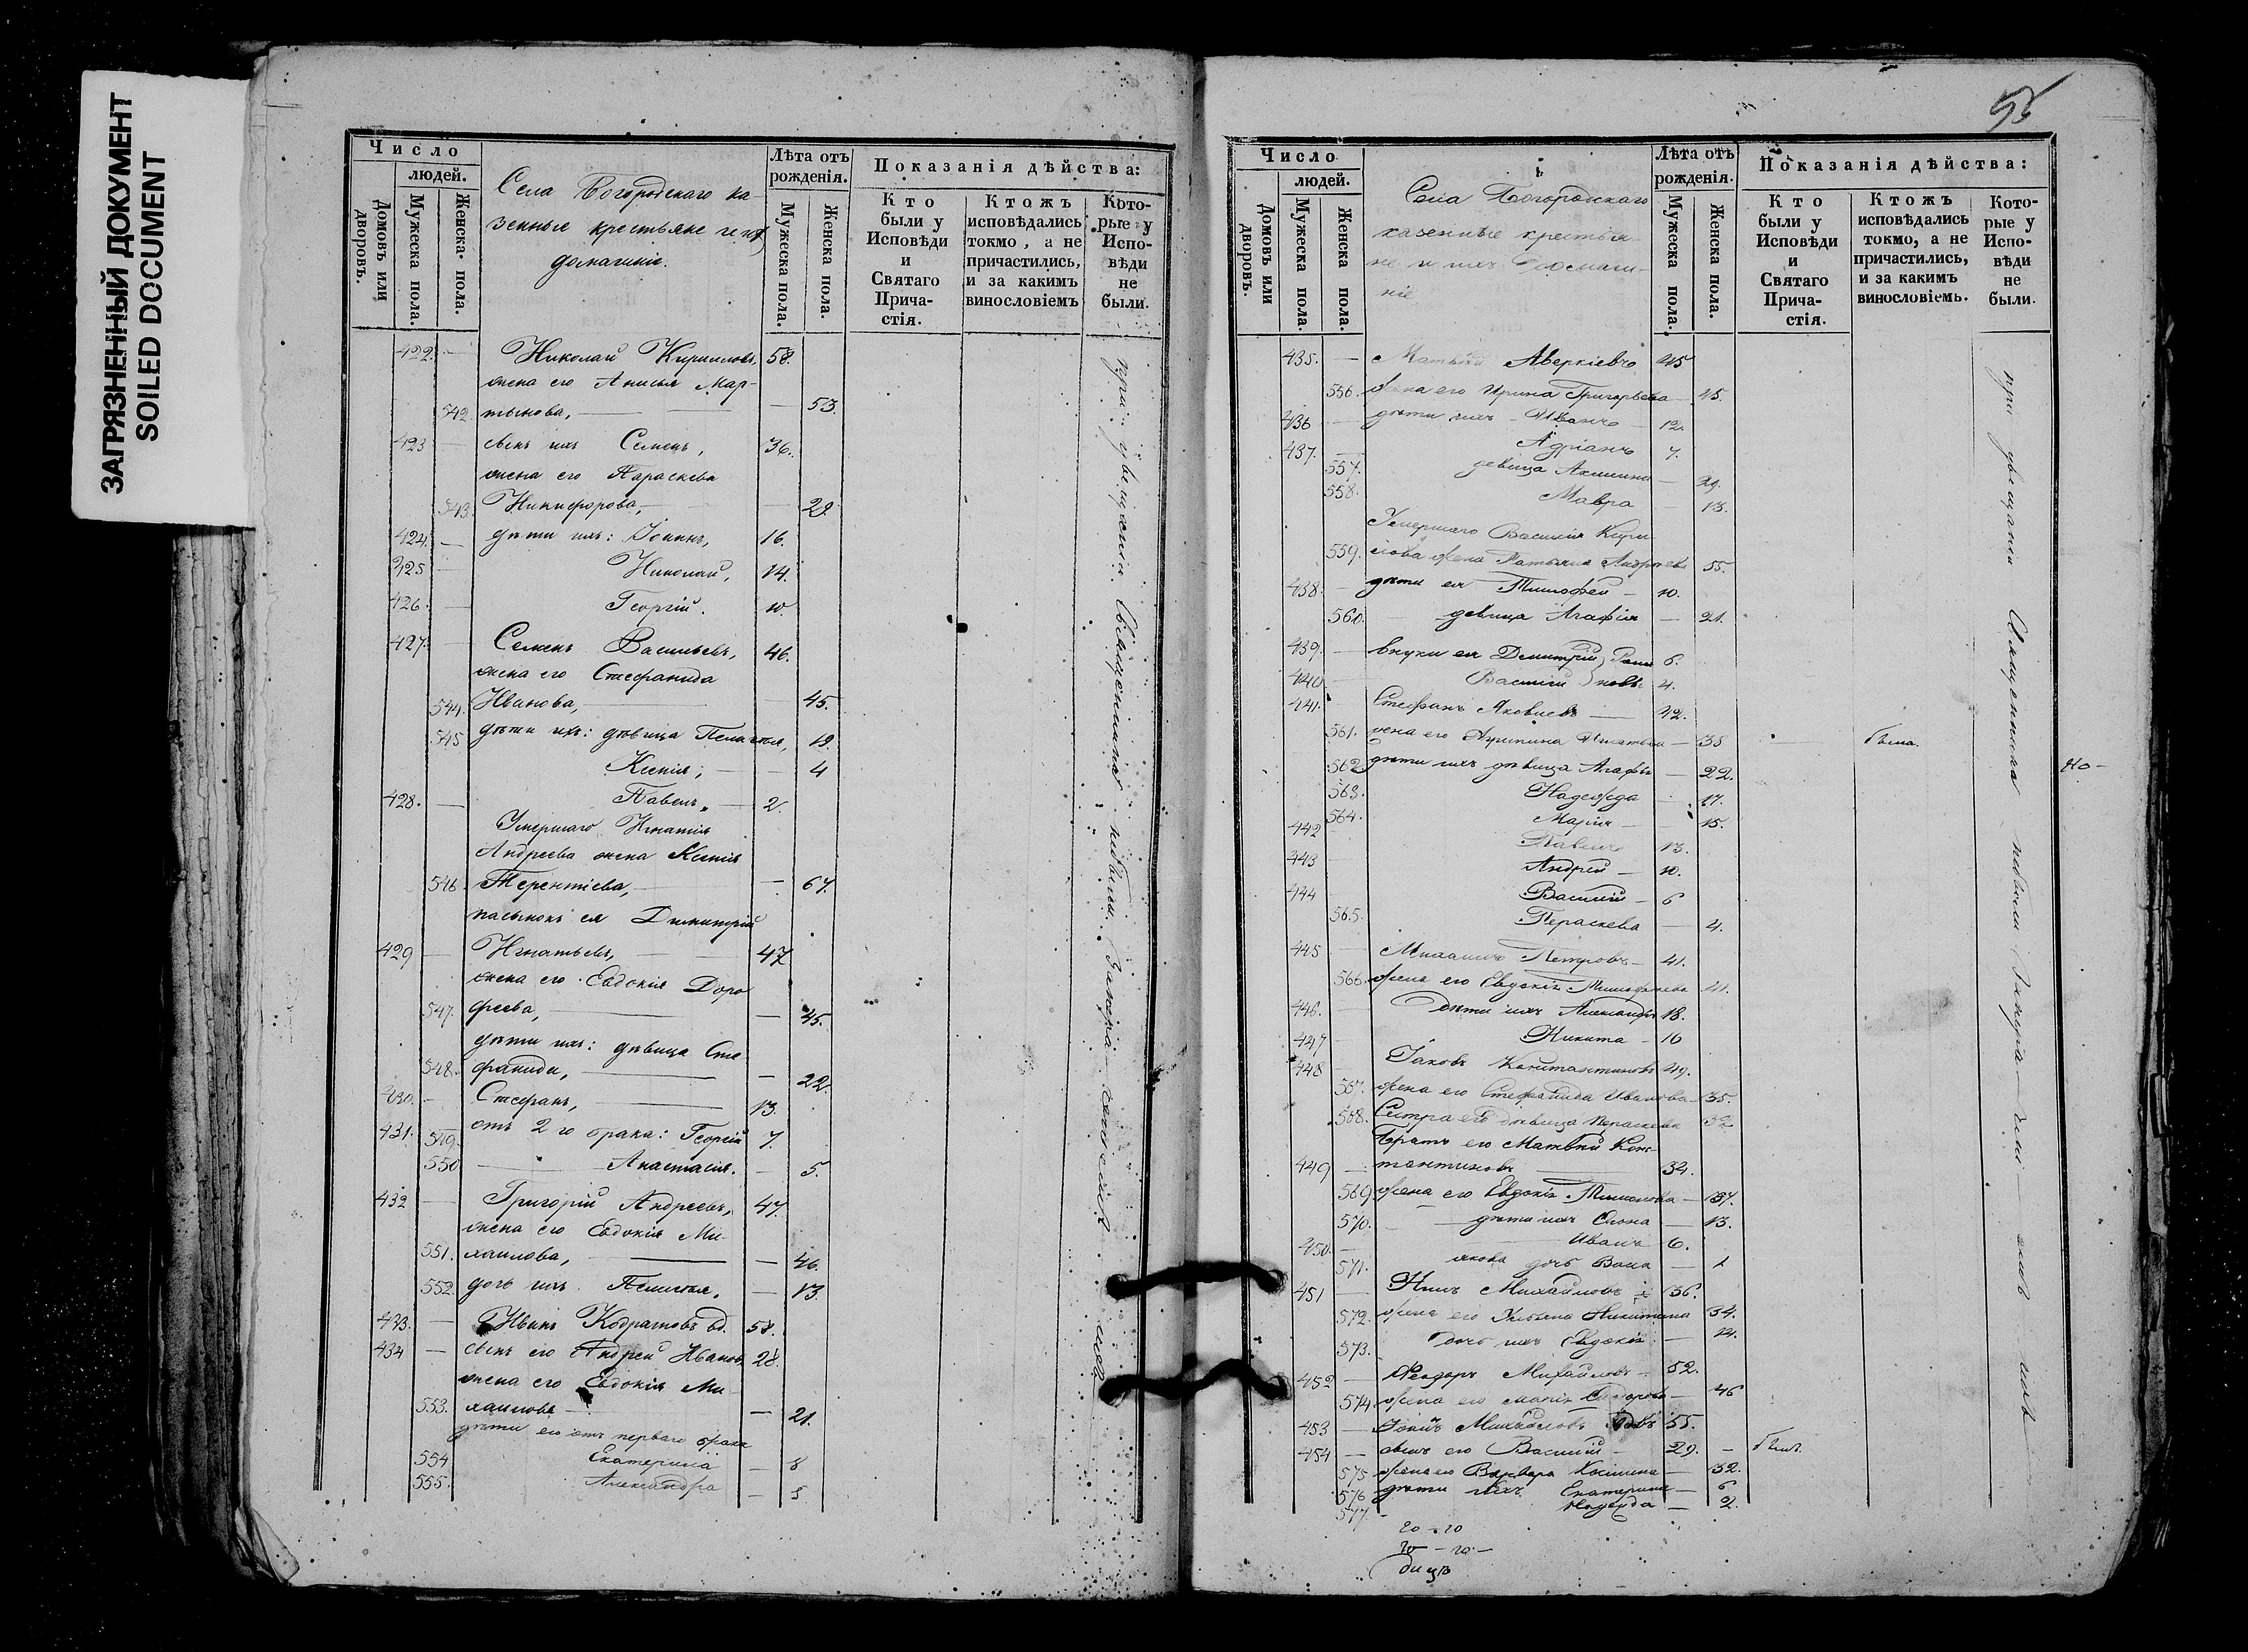 ЗАГРЯЗНЕННЫЙ ДОКУМЕНТ
SOILED DOCUMENT
Число
людей.
Домовъ или дворовъ.
Мужеска пола.
Женска пола.
Села Богородскаго ка-
зенные крестьяне и ихъ
домашніе.
Лѣта отъ рожденія.
Мужеска пола.
Женска пола.
Показанія дѣйства:
Кто были у Исповѣди и Святаго Прича-стія.
Ктожъ исповѣдались токмо, а не причастились, и за какимъ винословіемъ
Кото-рые у Испо-вѣди не были.
422. — Николай Кирилловъ, 58.
жена его Анисья Мар-
542. тынова, — — 53.
423 — сынъ ихъ Семенъ, 36.
жена его Параскева
543. Никифорова, — — 29.
424. — дѣти ихъ: Іоаннъ, 16.
425 — Николай, 14.
426. — Георгій. 10.
427. — Семенъ Васильевъ, 46.
жена его Стефанида
544. Иванова, — 45.
545 дѣти ихъ: дѣвица Пелагея, 19.
Ксенія, — — 4
428. — Павелъ, — 2.
Умершаго Игнатія
Андреева жена Ксенія
546. Терентіева, — — 67.
пасынокъ ея Димитрій
429 — Игнатьевъ, — 47
жена его Евдокія Доро
547. феева, — — 45.
дѣти ихъ: дѣвица Сте
548. фанида, — — 22.
430. — Стефанъ, — 13.
431. 549. отъ 2го брака: Георгій 7.
550 — Анастасія. — 5.
432 — Григорій Андреевъ, 47.
жена его Евдокія Ми-
551. хаилова, — — 46.
552. дочь ихъ Пелагея. — 13.
433. — Иванъ Кодратовъ вд. 58.
434 — сынъ его Андрей Иванов. 28.
жена его Евдокія Ми-
553. хаилова — — 21.
дѣти его отъ перваго брака
554 Екатерина — 8
555. Александра — 5
при увѣщаніи Священника небыли
Число
людей.
Домовъ или дворовъ.
Мужеска пола.
Женска пола.
Села Богородскаго
казенные крестья-
не и ихъ домаш-
ніе
Лѣта отъ рожденія.
Мужеска пола.
Женска пола.
Показанія дѣйства:
Кто были у Исповѣди и Святаго Прича-стія.
Ктожъ исповѣдались токмо, а не причастились, и за какимъ винословіемъ.
Кото-рые у Испо-вѣди не были.
435. — Матвѣй Аверкіевъ 45
556. жена его Ирина Григорьева — 45.
436 — дѣти ихъ — Иванъ — 12.
437. — Адріанъ 7.
557. девица Акилина — 29.
558. Мавра — 13.
Умершаго Василія Кири
559. лова жена Татьяна Андреева 55.
438. — дѣти ея Тимофей — 10.
560. — девица Агафія — 21.
439. — внуки ея Димитрій 6.
440 — Василій 4.
441. Стефанъ Яковлевъ — 42.
561. жена его Акрипина — 38 — была.
562. дѣти ихъ дѣвица Агафія — 22.
563. Надежда — 17.
564. Марія — 15.
442 Павелъ 13.
443 Андрей — 10.
444 Василій — 6
565. Пераскева — 4.
445 — Михаилъ Петровъ — 41.
566. жена его Евдокія Тимофѣева 41.
446. — дѣти ихъ Александръ 18.
447 — Никита — 16
448 — Іаковъ Константиновъ 49.
567. жена его Стефанида Иванова 35.
568. Сестра его дѣвица Пераскева 32
Братъ его Матвѣй Конс-
449 — тантиновъ 34.
569 жена его Евдокія Тимонова — 37.
570. — дѣти ихъ Елена — 13.
450. — Иванъ 6.
571. якова дочь — 1
451 — Михайловъ 36.
572. жена его Ульяна Никитина 34.
573. дочь ихъ Евдокія — 12.
452 — Феодоръ Михайловъ — 52.
574 жена его Марія — 46
453 — Іоанъ Михайловъ вдовъ 55.
454 — сынъ его Василій — 29. — былъ.
575 жена его Варвара Косьмина — 32.
576 дѣти ихъ Екатерина — 6
577. — Надежда — 2.
20 — 20
при увѣщаніи Священника небыли